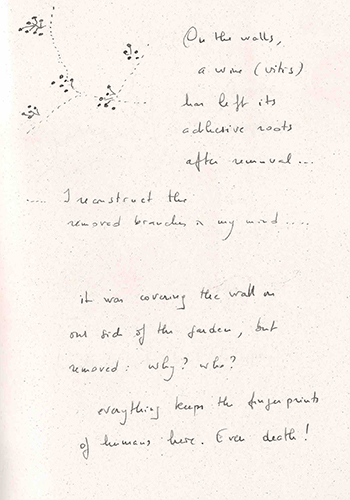 On the walls,
a wine (vitis)
has left its
adhesive roots
after removal...
..... I reconstruct the
removed branches in my mind.....
it was covering the wall on
one side of the garden, but
removed: why? who?
everything keeps the fingerprints
of humans here. Even death!